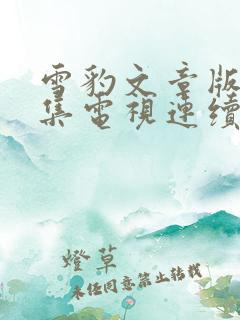 雪豹文章版
集電視連續
燈草
未經同意禁止轉載